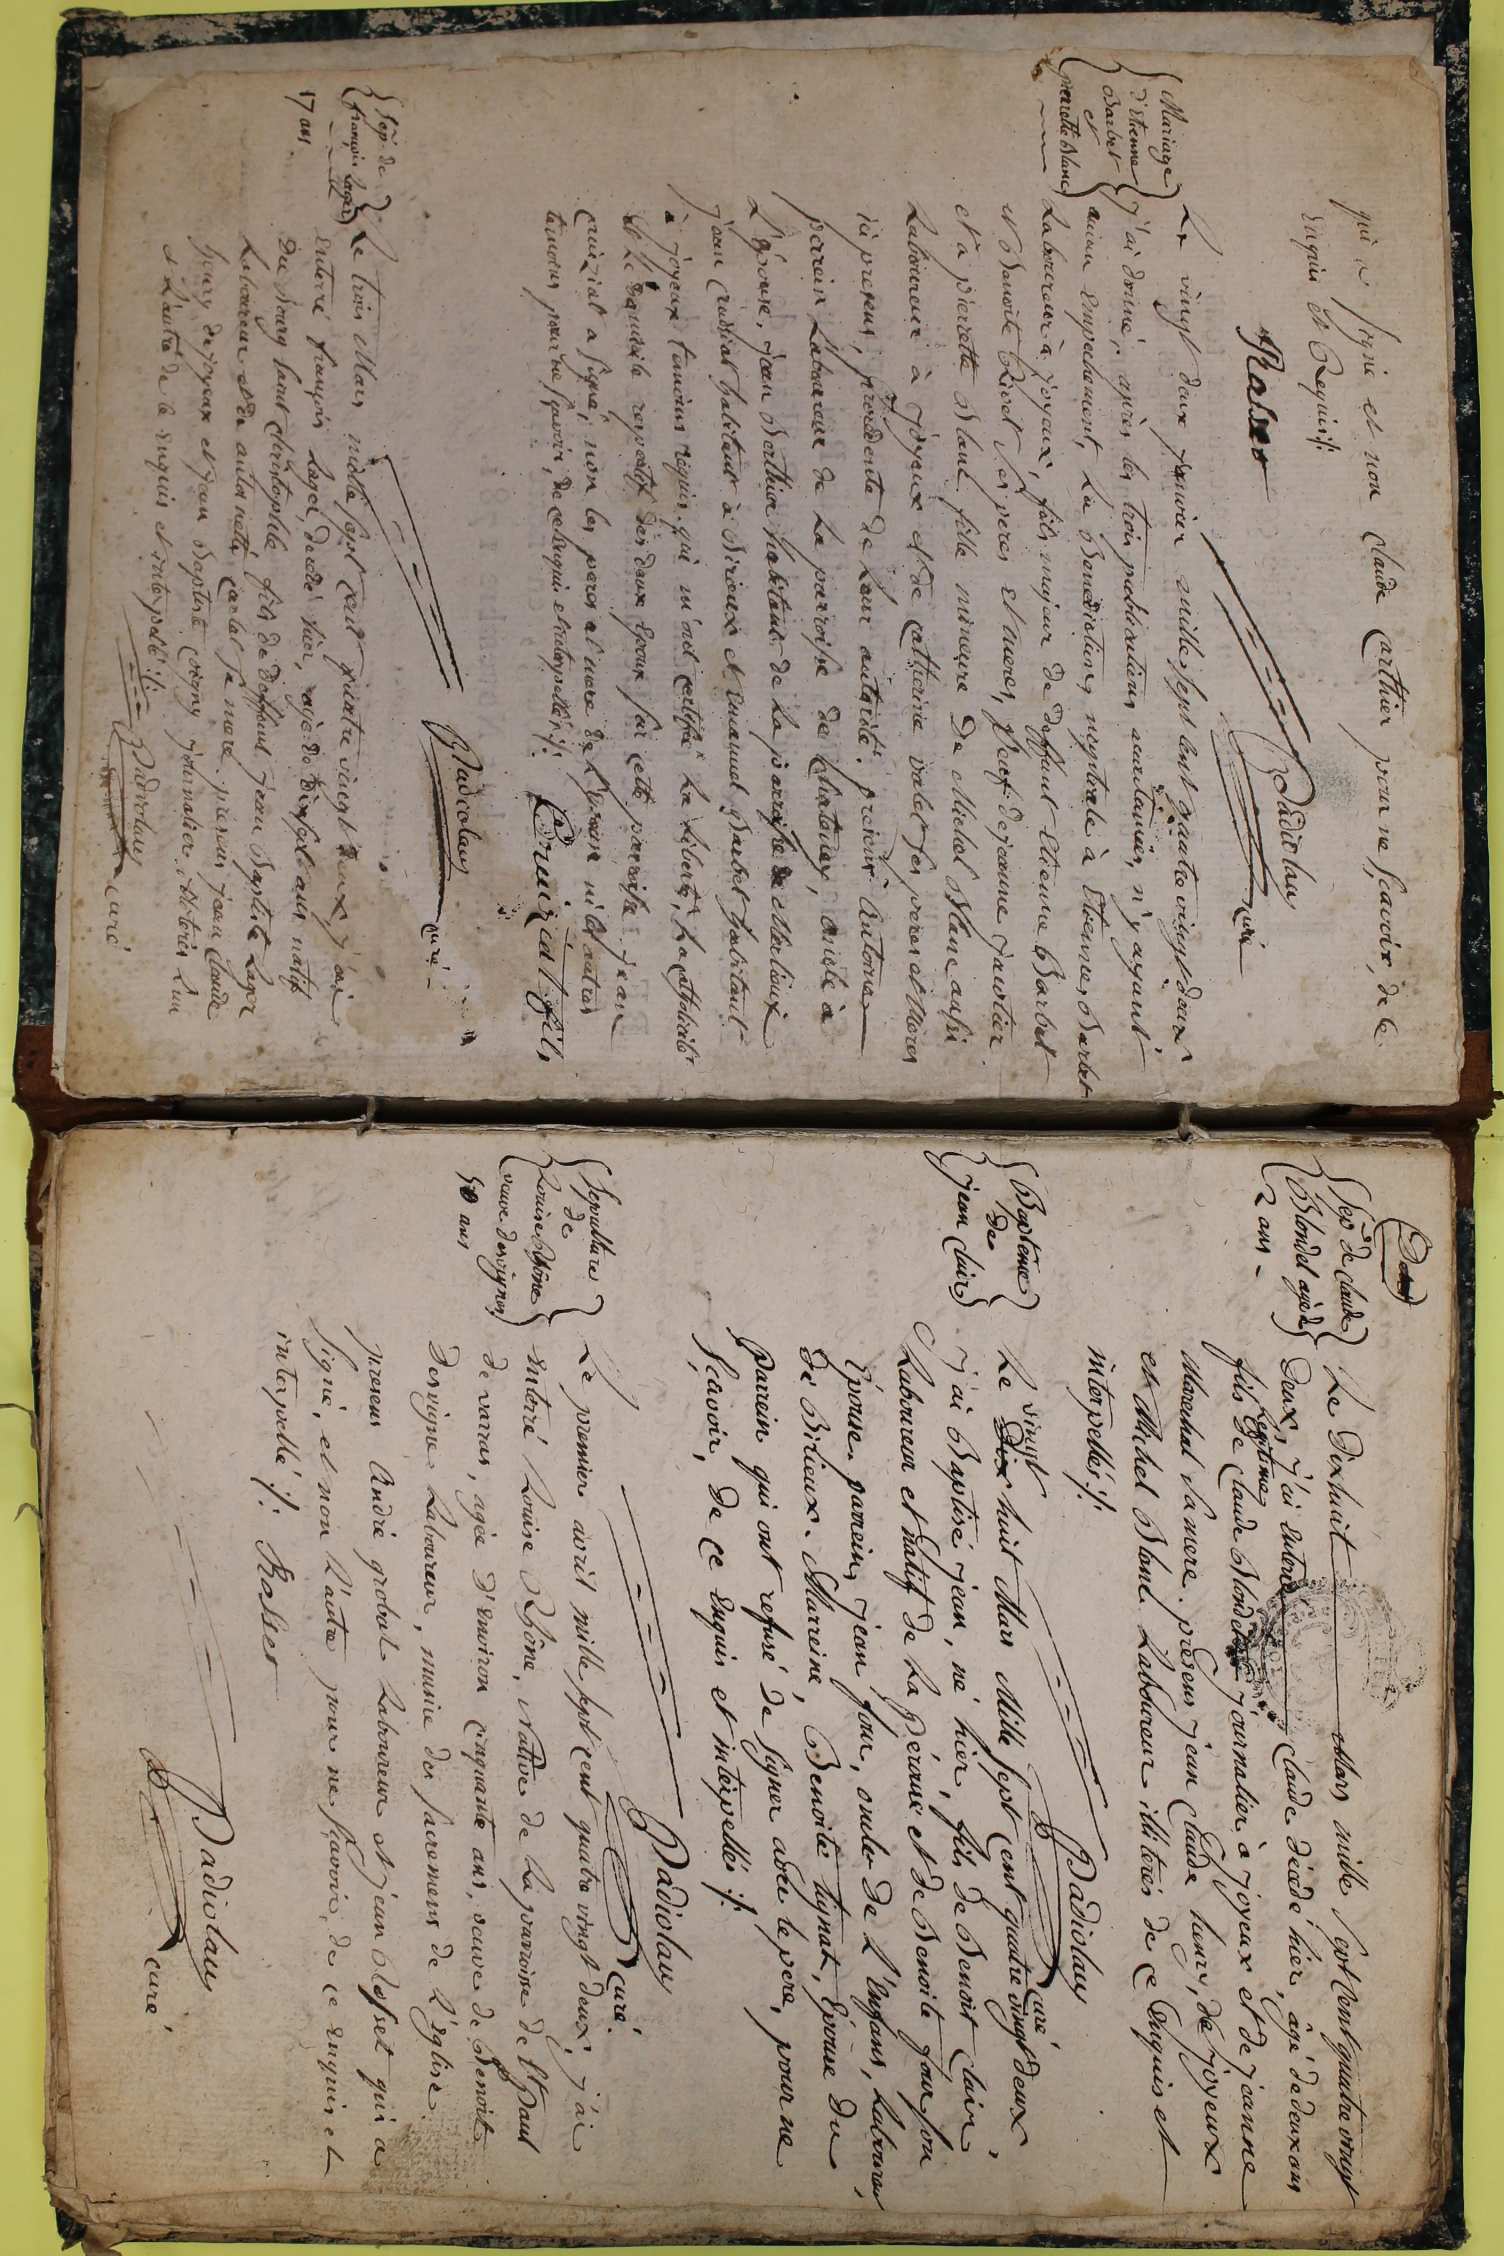 qui a signé et non claude carthier pour ne sçavoir, de ce
enquis et Requis ./.
Rosset
Padiolau
curé
Mariage
d'Etienne
Barbet
et
pierrette Blanc
Le vingt deux janvier mille sept cent quatre vingt deux
j'ai donné, après les trois publications accoutumées, n'y ayant
aucun empechement, La Benediction nuptiale à Etienne Barbet
Laboureur à joyeux, fils majeur de deffunt Etienne Barbet
et Benoite Rivet ses peres et meres, veuf de jeanne
et à pierrette Blanc fille mineure de Michel Blanc aussi
Laboureur à joyeux et de catherine valet ses peres et Meres
ici presens, procedente de Leur autorité. presens Antoine
perrin Laboureur de La parroise de chatenay, oncle à
L'Epouse, jean Berthier habitant de La parroise de Marlieux
jean cruiziat habitant à Birieux et Emanuel Barbet habitant
à joyeux temoins requis qui m'ont certifié La Liberté, La catholicité
et Le Domicile respectif des deux Epoux sur cette parroisse. jean
cruiziat a signé, non les peres et mere de L'Epouse ni les autres
temoins pour ne sçavoir, de ce Enquis et interpellés ./.
Cruiziat fils
Padiolau
curé
Sep. de
françois Lager
17 ans
Le trois Mars mille sept cent quatre vingt deux, j'ai
enterré françois Lager, décédé hier, agé de dixsept ans natif
du Bourg saint christophle fils de deffunt jean Baptiste Lager
Laboureur et de antoinette carlet sa mere. presens jean claude
huery de joyeux et jean Baptiste corigny journalier. illiterés L'un
et L'autre de ce enquis et interpellé ./.
Padiolau
curé
Deux
Sep. de claude
Blondel agé de
2 ans
Le Dixhuit Mars mille sept cent quatre vingt
Deux, j'ai enterré claude décédé hier, âgé de deux ans
fils Legitime de claude Blondel journalier à joyeux et de jeanne
Marechal sa mere. presens jean claude huery, de joyeux
et Michel Blanc Laboureur illiterés de ce Enquis et
interpellés ./.
Padiolau
curé
Baptême
de
jean clair
Le vingt huit Mars Mille sept cent quatre vingt deux,
j'ai Baptisé jean, né hier, fils de Benoit clair
Laboureur et natif de La Pérouse et de Benoite four son
Epouse. parrein jean four, oncle De L'Enfant, Laboureur,
de Birieux. Marreine, Benoite lignat, Epouse du
Parrein qui ont refusé de signer avec le pere, pour ne
sçavoir, de ce enquis et interpellés ./.
Padiolau
curé.
Sepulture
de
Louise Rhône
veuve desvignes
50 ans
Le premier avril mille sept cent quatre vingt deux, j'ai
enterré Louise Rhône, native de la parroise de St Paul
de varax, agée d'environ cinquante ans, veuve de Benoit
Desvigne Laboureur, munie des sacremens de L'Eglise.
presens André grobat Laboureur et jean Rosset qui a
signé, et non L'autre pour ne sçavoir, de ce enquis et
interpellé ./. Rosset
Padiolau
curé.